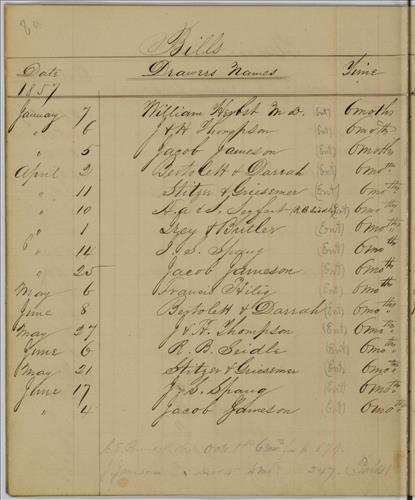 80
Bills
Date Drawers Names Time
1857
January 7 William Herbst M D. (Ent) 6 moths
" 6 J & H Thompson (Ent) 6 moths
" 5 Jacob Jameson (Ent) 6 moths
April 2 Bertolett & Darrah (Ent) 6 moth.
" 11 Stitzer & Griesemer (Ent) 6 moths
" 10 H. & S. Seyfert (R. B. Seidle) (Ent) 6 moths
" 1 Frey & Butler (Ent) 6 moths.
" 14 J. S. Spang (Ent) 6 moth
" 25 Jacob Jameson (Ent) 6 moth.
May 6 Francis Hilig (Ent) 6 moth.
June 8 Bertolett & Darrah (Ent) 6 moth.
May 27 J & H. Thompson (Ent) 6 moths.
June 6 R. B. Seidle (Ent) 6 moths.
May 21 Stitzer & Griesemer (Ent) 6 moths.
June 17 J. S. Spang (Ent) 6 moths.
" 4 Jacob Jameson (Ent) 6 moths.
Oct 1st 6 mos
4 mos 247.